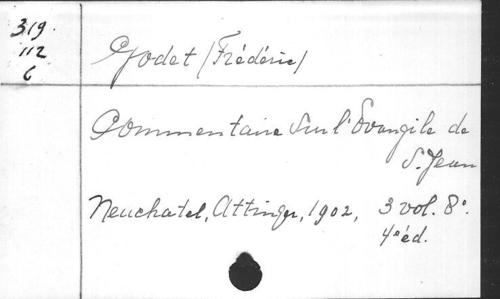 319
112
6
Godet (Frédéric)
Commentaire sur l'Evangile de
S. Jean
Neuchatel, Attinger, 1902, 3 vol. 8°.
4e éd.